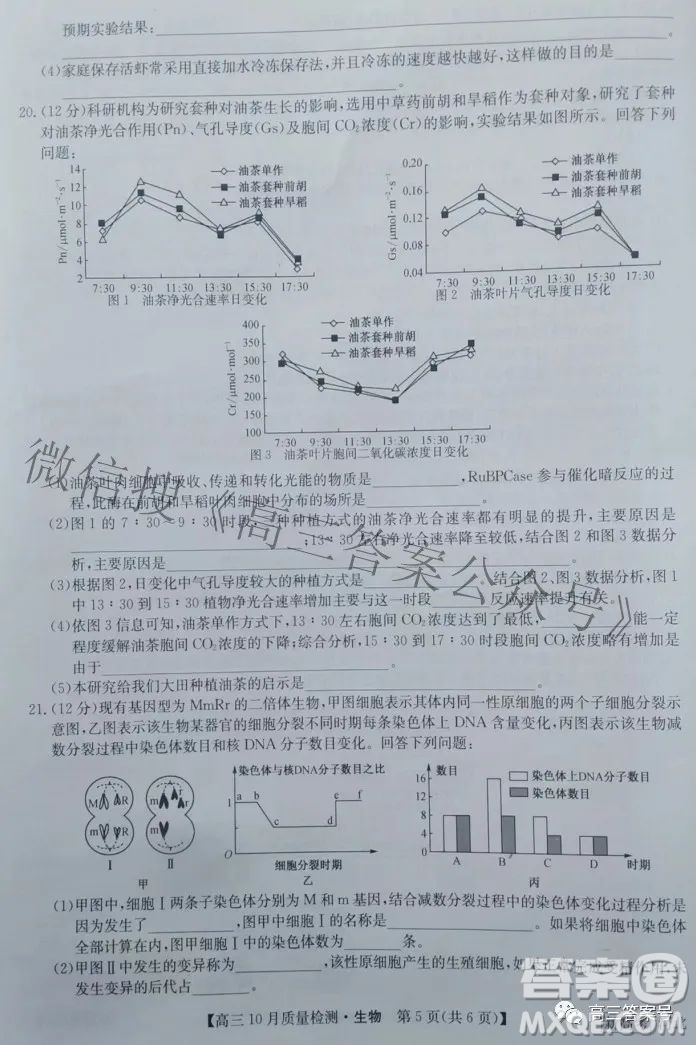 预期实验结果:
(4)家庭保存活虾常采用直接加水冷冻保存法,并且冷冻的速度越快越好,这样做的目的是
。
20.(12分)科研机构为研究套种对油茶生长的影响,选用中草药前胡和旱稻作为套种对象,研究了套种
对油茶净光合作用(Pn)、气孔导度(Gs)及胞间CO₂浓度(Cr)的影响,实验结果如图所示。回答下列
问题:
油茶单作
油茶套种前胡
油茶套种旱稻
Pn/μmol·m⁻²·s⁻¹
14
12
10
8
6
4
2
7:30 9:30 11:30 13:30 15:30 17:30
图1 油茶净光合速率日变化
油茶单作
油茶套种前胡
油茶套种旱稻
Gs/μmol·m⁻²·s⁻¹
0.20
0.16
0.12
0.08
0.04
7:30 9:30 11:30 13:30 15:30 17:30
图2 油茶叶片气孔导度日变化
油茶单作
油茶套种前胡
油茶套种旱稻
Cr/μmol·mol⁻¹
400
350
300
250
200
150
100
7:30 9:30 11:30 13:30 15:30 17:30
图3 油茶叶片胞间二氧化碳浓度日变化
(1)油茶叶肉细胞中吸收、传递和转化光能的物质是 ,RuBPCase参与催化暗反应的过
程,此酶在前胡和旱稻叶肉细胞中分布的场所是 。
(2)图1的7:30~9:30时段,三种种植方式的油茶净光合速率都有明显的提升,主要原因是
;13:30左右净光合速率降至较低,结合图2和图3数据分
析,主要原因是 。
(3)根据图2,日变化中气孔导度较大的种植方式是 。结合图2、图3数据分析,图1
中13:30到15:30植物净光合速率增加主要与这一时段 反应速率提升有关。
(4)依图3信息可知,油茶单作方式下,13:30左右胞间CO₂浓度达到了最低, 能一定
程度缓解油茶胞间CO₂浓度的下降;综合分析,15:30到17:30时段胞间CO₂浓度略有增加是
由于 。
(5)本研究给我们大田种植油茶的启示是 。
21.(12分)现有基因型为MmRr的二倍体生物,甲图细胞表示其体内同一性原细胞的两个子细胞分裂示
意图,乙图表示该生物某器官的细胞分裂不同时期每条染色体上DNA含量变化,丙图表示该生物减
数分裂过程中染色体数目和核DNA分子数目变化。回答下列问题:
M R m r
m R m r
Ⅰ Ⅱ
甲
染色体与核DNA分子数目之比
1
0
a b c d e f
细胞分裂时期
乙
数目
16
12
8
4
染色体上DNA分子数目
染色体数目
A B C D 时期
丙
(1)甲图中,细胞Ⅰ两条子染色体分别为M和m基因,结合减数分裂过程中的染色体变化过程分析是
因为发生了 ,图甲中细胞Ⅰ的名称是 。如果将细胞中染色体
全部计算在内,图甲细胞Ⅰ中的染色体数为 条。
(2)甲图Ⅱ中发生的变异称为 ,该性原细胞产生的生殖细胞,
发生变异的后代占 。
【高三10月质量检测·生物 第5页(共6页)】
微信搜《高三答案公众号》
答案圈
MXQE.COM
高三答案号